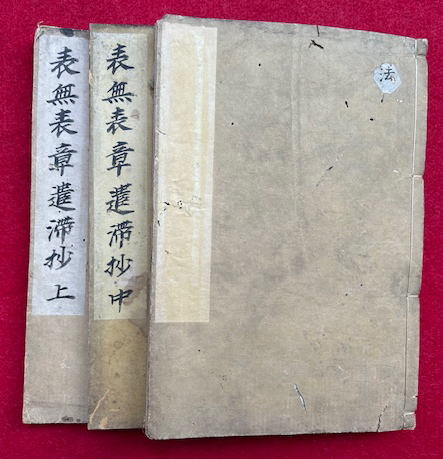 表無表章遣滯抄上
表無表章遣滯抄中
法